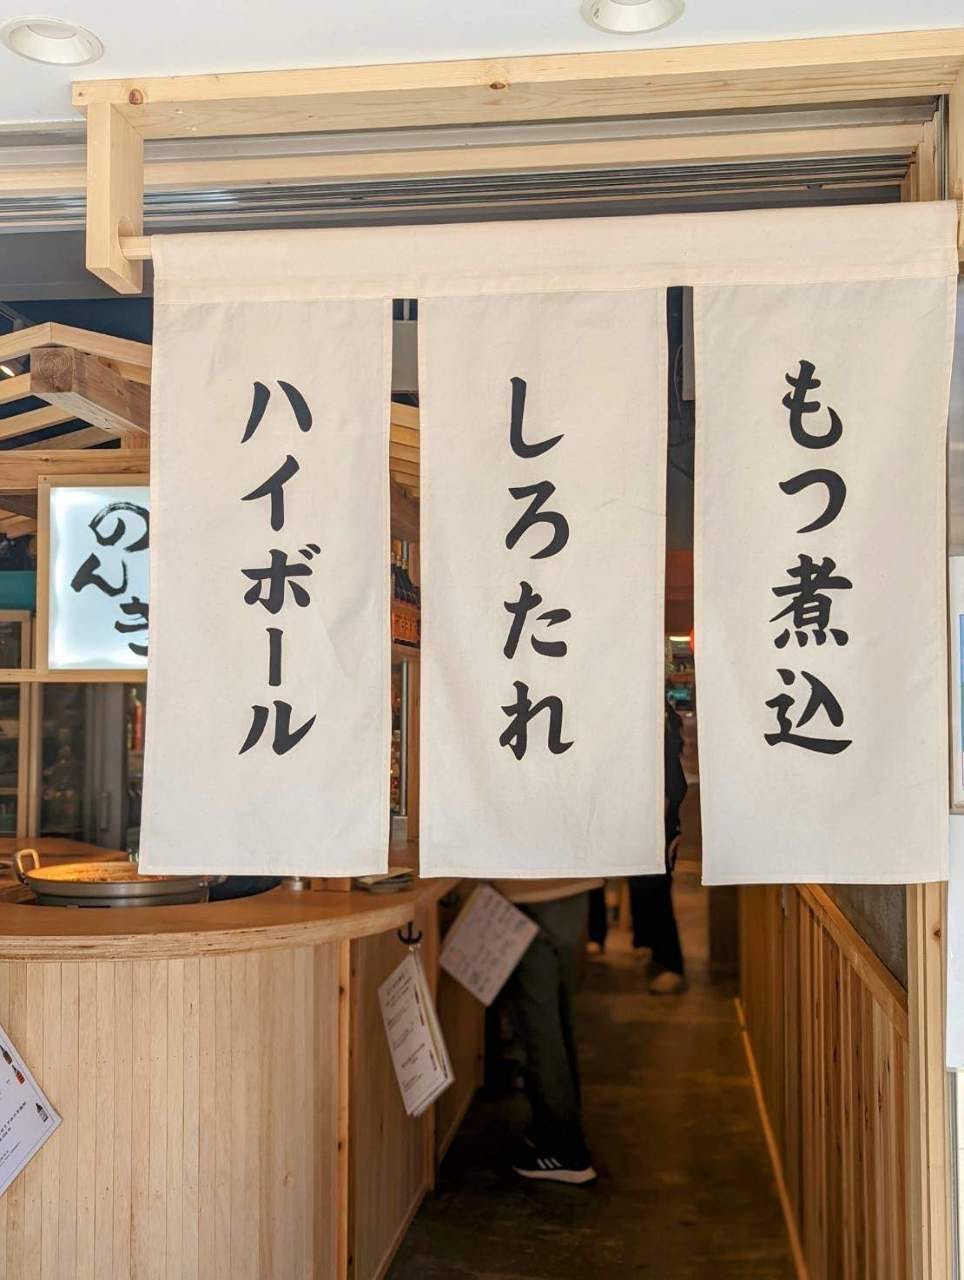 もつ煮込
しろたれ
ハイボール
のんき